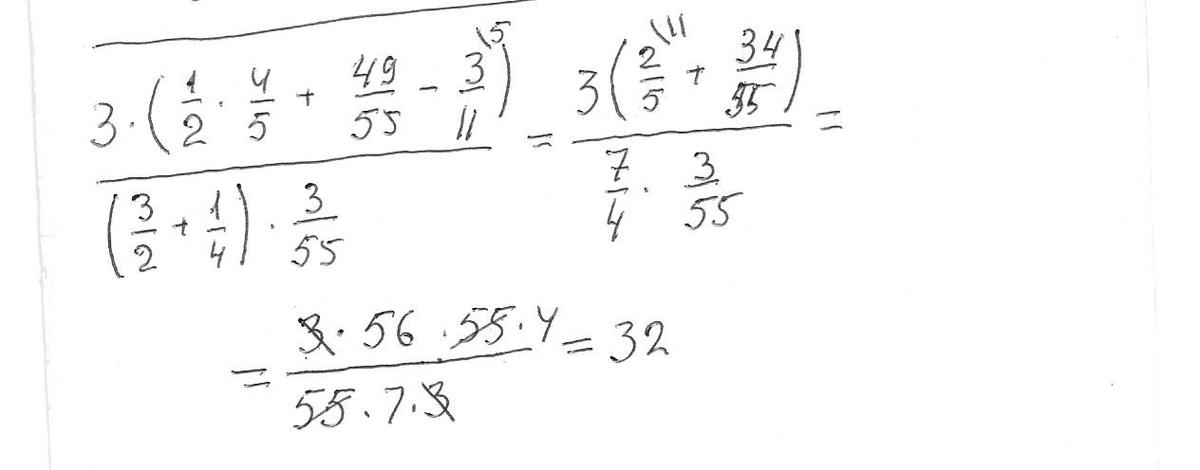 3·(1/2 · 4/5 + 49/55 - 3/11 \5) / (3/2 + 1/4) · 3/55 = 3(2/5 \11 + 34/55) / 7/4 · 3/55 =
= 3·56·55·4 / 55·7·3 = 32